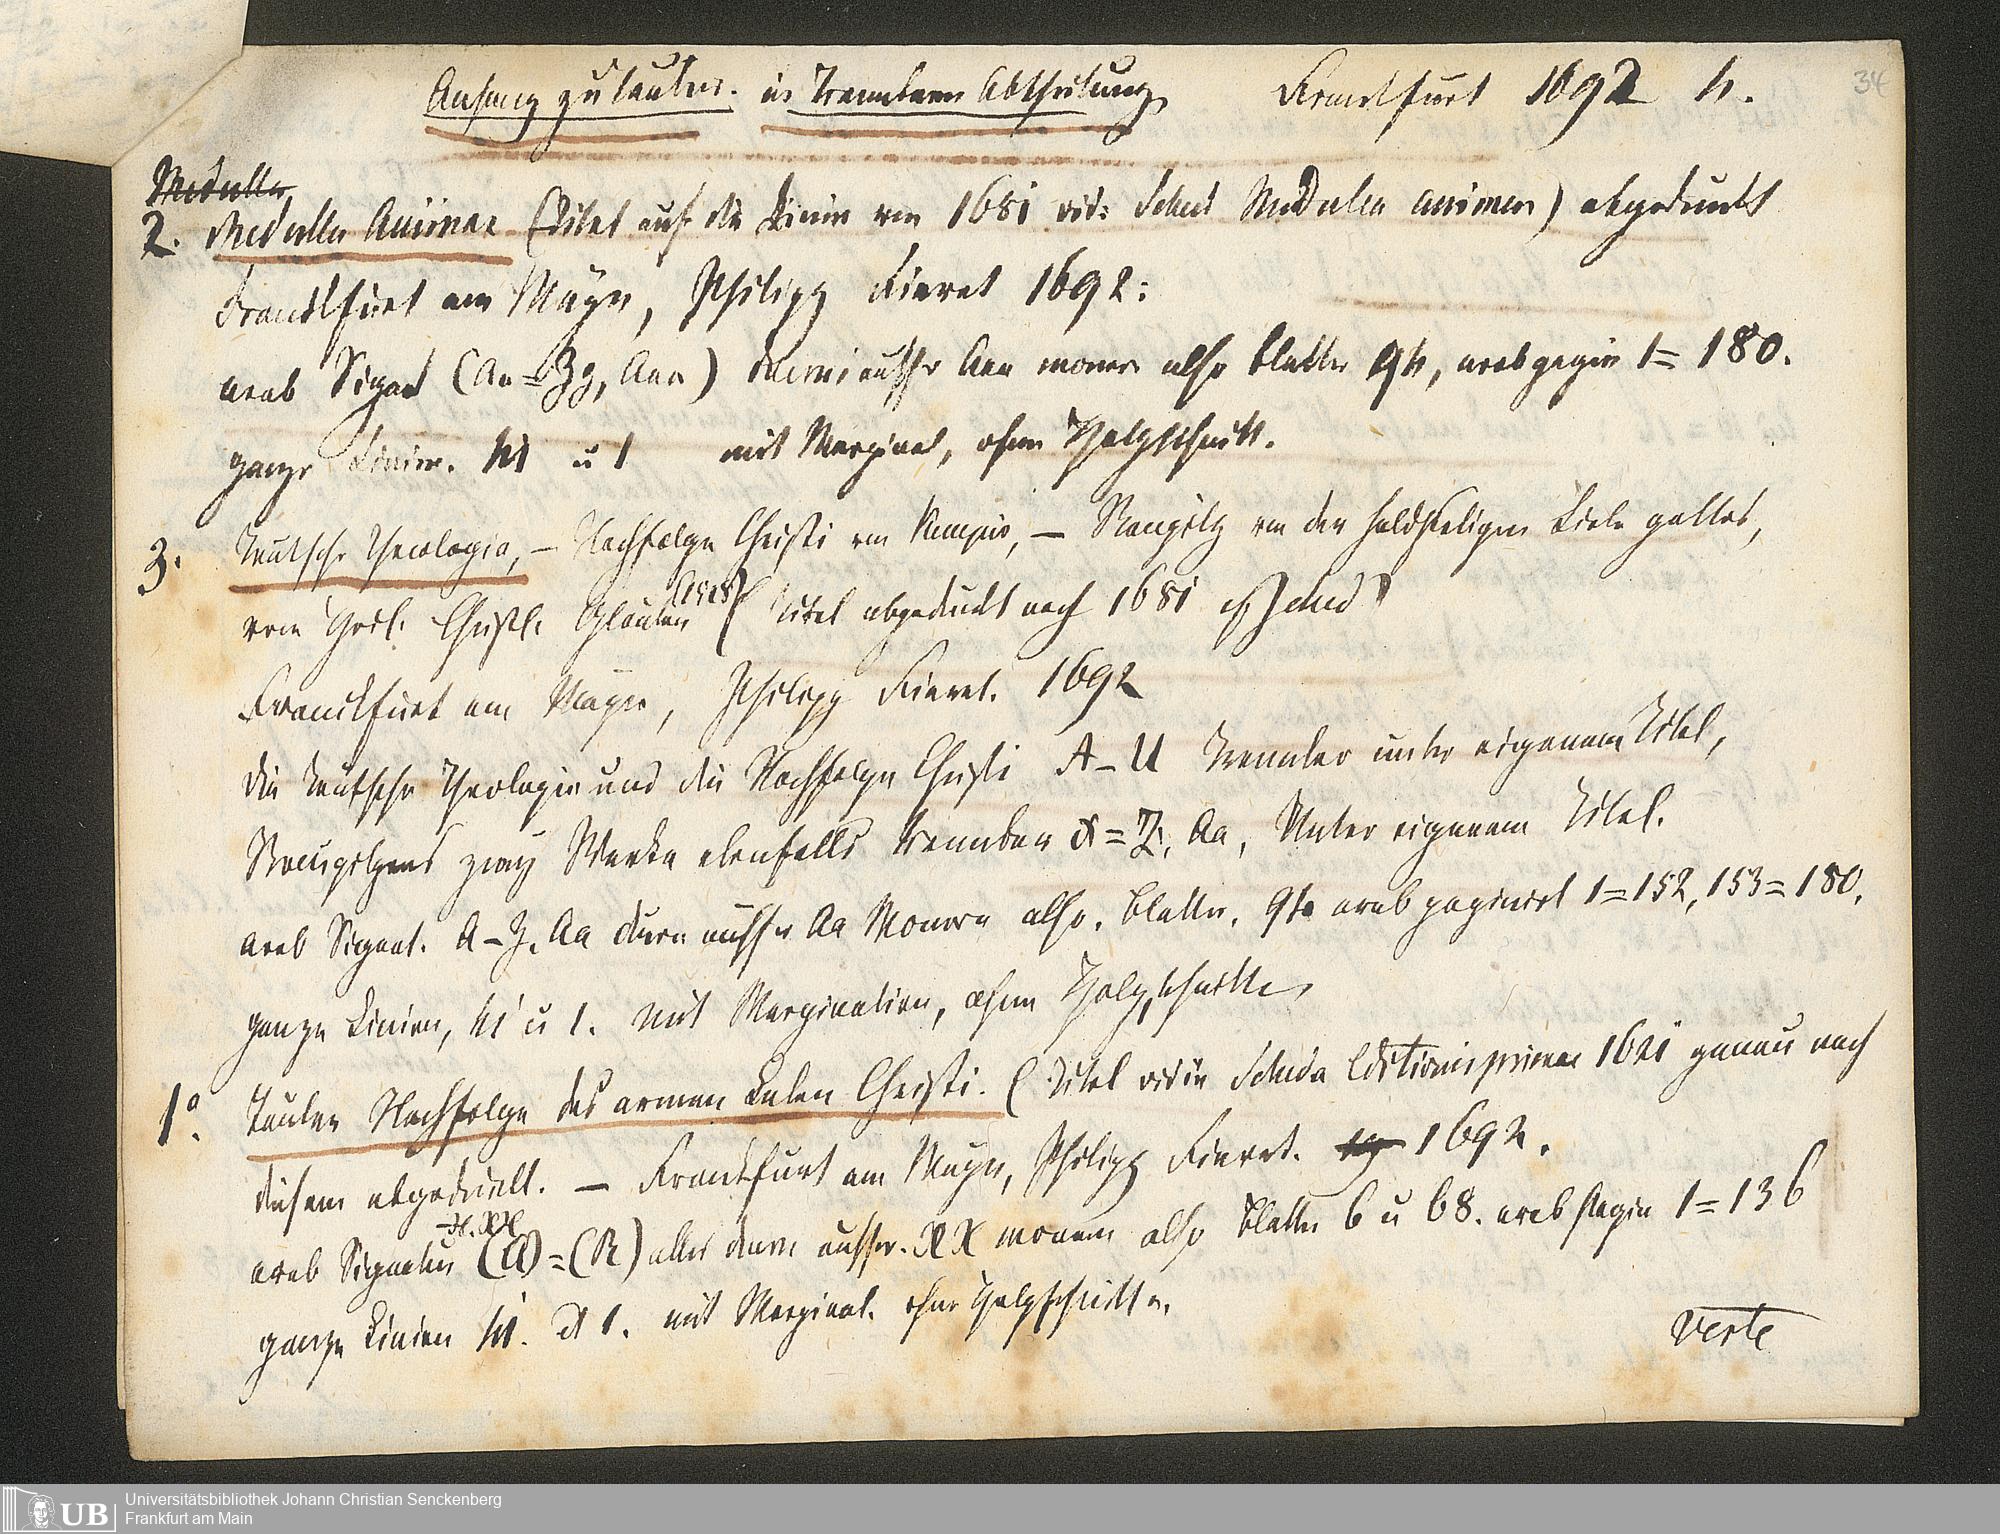 Anhang zu Taulers. in Trennbaren Abtheilung Franckfurt 1692 4.
34
Medulla
2. Medulla Animae (Titel auf die Linie von 1681 vid: Sched Medulla animae) abgedruckt
Franckfurt am Mayn, Philipp Fievet 1692:
arab Signat (Aa = Zz, Aaa) außer Aaa also Blätter 94, arab pagin 1 = 180.
ganze Linien. 41 u 1 mit Marginal, ohne Holzschnitt.
3. Teutsche Theologia, — Nachfolge Christi von Kempis, — Staupitz von der holdseligen Liebe gottes,
vom Heil. Christl. Glauben (Titel abgedruckt nach 1681 Sched
Franckfurt am Mayn, Philipp Fievet. 1692
die Teutsche Theologie und die Nachfolge Christi A – U trennbar unter eigenem Titel,
Staupitzens zwey Werke ebenfalls trennbar X = Z, Aa, Unter eigenem Titel.
arab Signat. A – Z, Aa außer Aa also. Blätter. arab paginirt 1 = 152, 153 = 180.
ganze Linien, 41 u 1. mit Marginalien, ohne Holzschnitte,
1° Tauler Nachfolge des armen Leben Christi. (Titel vid in Scheda Editionis primae 1621 genau nach
diesem abgedruckt. — Franckfurt am Mayn, Philipp Fievet. 1692.
arab Signatur (A) = (R) alles außer. also Blätter 6 u 68. arab Pagin 1 = 136
ganze Linien 41. 1. mit Marginal. ohne Holzschnitte.
verte
UB
Universitätsbibliothek Johann Christian Senckenberg
Frankfurt am Main